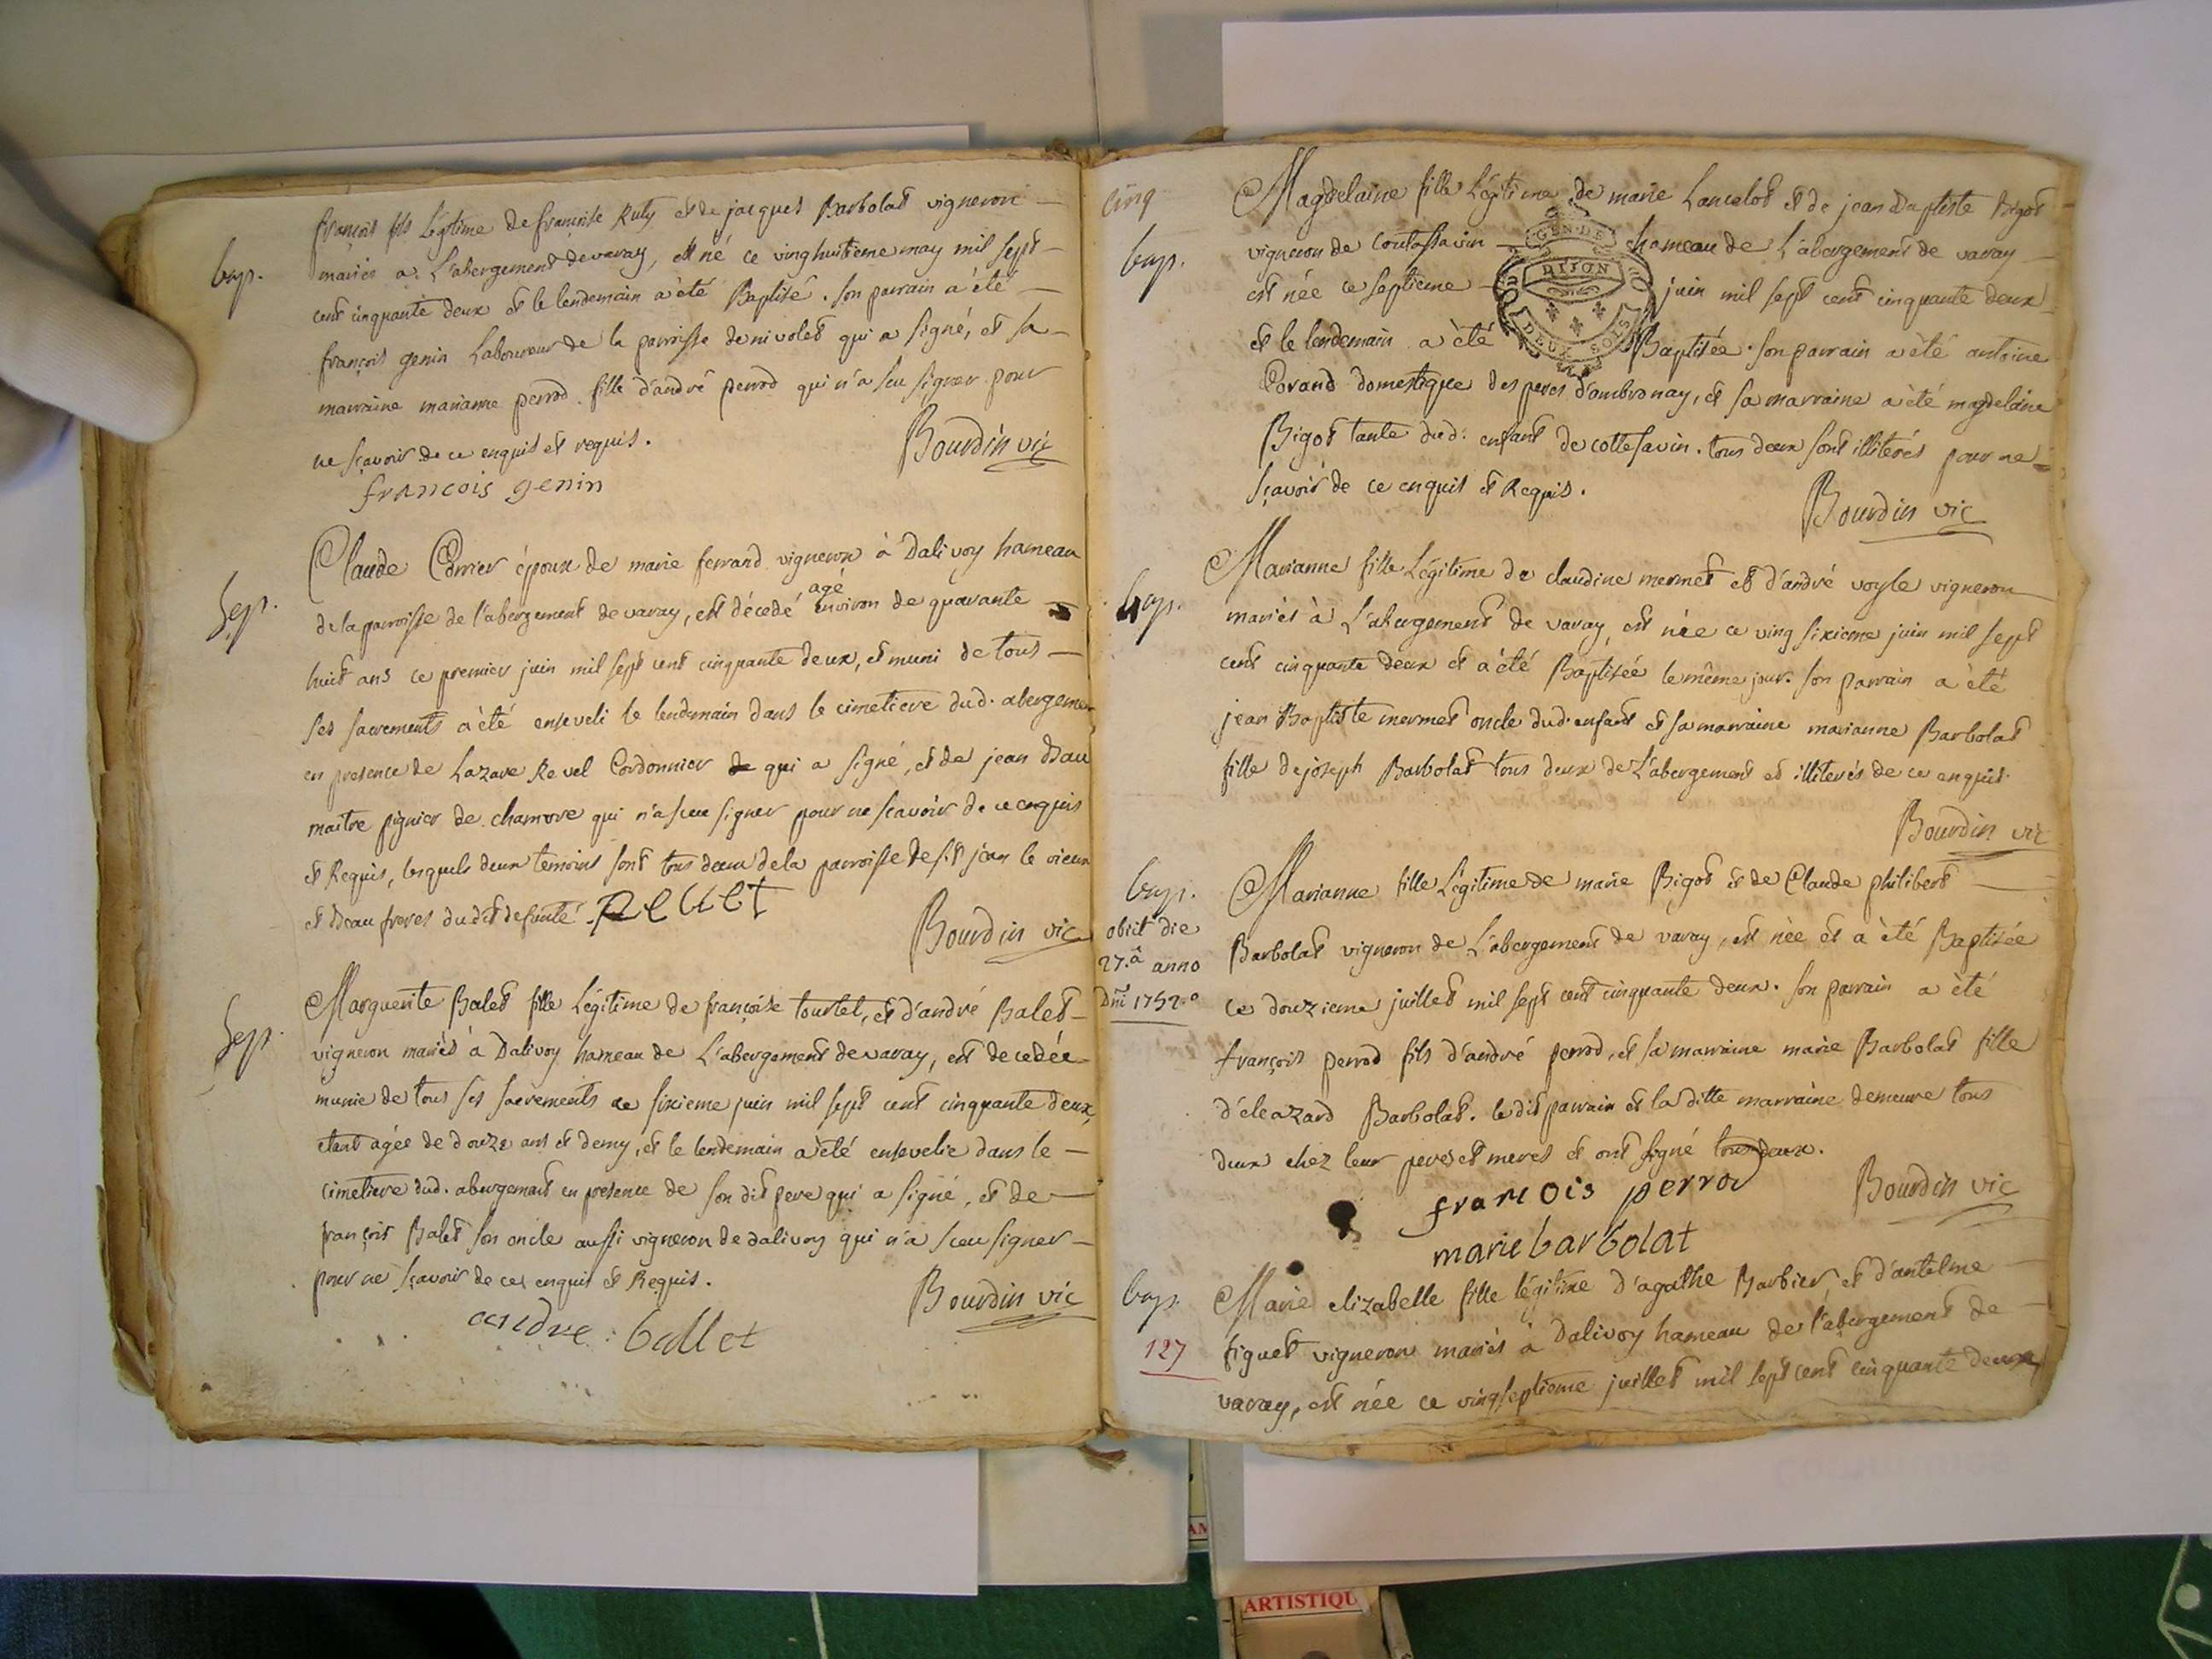 bap.
françois fils Légitime de françoise Ruty et de jacques Barbolat vigneron
mariés a L'abergement de varay, est né ce vinghuitieme may mil sept
cent cinquante deux et le lendemain a èté Baptisé. son parrain a èté
françois genin Laboureur de la parroisse de nivolet qui a signé, et sa
marraine marianne perrod fille d'andré perrod qui n'a sçu signer pour
ne sçavoir de ce enquis et requis.
Bourdin vic
francois genin
Sep.
Claude Carrier époux de marie ferrand vigneron à Dalivoy hameau
de la parroisse de l'abergement de varay, est décedé agé environ de quarante
huit ans ce premier juin mil sept cent cinquante deux, et muni de tous
ses sacrements a èté enseveli le lendemain dans le cimetiere dud. abergement
en presence de Lazare Revel Cordonnier qui a signé, et de jean
maitre pignier de chamvre qui n'a sceu signer pour ne scavoir de ce enquis
et Requis, lesquels deux temoins sont tous deux de la parroisse de st jean le vieux
et Beau freres dudit defunté.
Bourdin vic
Sep.
Marguerite Balet fille Légitime de françoise tourtel, et d'andré Balet
vigneron mariés à Dalivoy hameau de L'abergement de varay, est decedée
munie de tous ses sacrements ce sixieme juin mil sept cent cinquante deux,
etant agée de douze ans et demy, et le lendemain a èté ensevelie dans le
cimetiere dud. abergement en presence de son dit pere qui a signé, et de
françois Balet son oncle aussi vigneron de dalivoy qui n'a sceu signer
pour ne sçavoir de ce enquis et Requis.
Bourdin vic
andre: ballet
cinq
bap.
Magdelaine fille Légitime de marie Lancelot et de jean Baptiste Bigot
vigneron de hameau de L'abergement de varay
est née ce septieme juin mil sept cent cinquante deux
et le lendemain a èté Baptisée. son parrain a èté antoine
domestique des peres d'ambronay, et sa marraine a èté magdelaine
Bigot tante dud. enfant de cottesavin. tous deux sont illiterés pour ne
sçavoir de ce enquis et Requis.
GEN. DE DIJON
DEUX SOLS
Bourdin vic
bap.
Marianne fille Légitime de claudine mermet et d'andré voyle vigneron
mariés à L'abergement de varay, est née ce ving sixieme juin mil sept
cent cinquante deux et a èté Baptisée le même jour. son parrain a èté
jean Baptiste mermet oncle dud. enfant et sa marraine marianne Barbolat
fille de joseph Barbolat tous deux de L'abergement et illiterés de ce enquis.
Bourdin vic
bap.
obiit die
27.a anno
Dni 1752.o
Marianne fille Légitime de marie Bigot et de Claude philibert
Barbolat vigneron de L'abergement de varay, est née et a èté Baptisée
ce douzieme juillet mil sept cent cinquante deux. son parrain a èté
françois perrod fils d'andré perrod, et sa marraine marie Barbolat fille
d'eleazard Barbolat. le dit parrain et la ditte marraine demeure tous
deux chez leur peres et meres et ont signé tous deux.
francois perrod
Bourdin vic
marie barbolat
bap.
127
Marie elizabelle fille légitime d'agathe Barbier, et d'antelme
figuet vigneron mariés à Dalivoy hameau de l'abergement de
varay, est née ce vingseptieme juillet mil sept cent cinquante deux,
ARTISTIQU